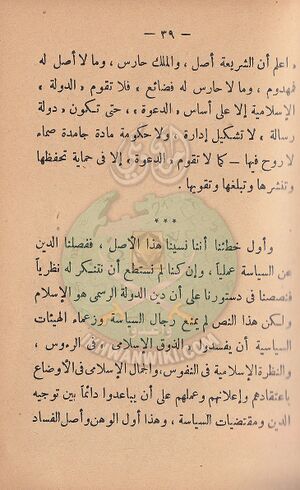 — ٣٩ —
« اعلم أن الشريعة أصل ، والملك حارس ، وما لا أصل له
فمهدوم ، وما لا حارس له فضائع ، فلا تقوم « الدولة »
الإسلامية إلا على أساس « الدعوة » ، حتى تكون ، دولة
رسالة ، لا تشكيل إدارة ، ولا حكومة مادة جامدة صماء
لا روح فيها — كما لا تقوم ، الدعوة ، إلا فى حماية تحفظها
وتنشرها وتبلغها وتقويها .
***
وأول خطئنا أننا نسينا هذا الأصل ، ففصلنا الدين
عن السياسة عملياً ، وإن كنا لم نستطع أن نتنكر له نظرياً
فنصصنا فى دستورنا على أن دين الدولة الرسمى هو الإسلام
ولكن هذا النص لم يمنع رجال السياسة وزعماء الهيئات
السياسية أن يفسدوا ، الذوق الإسلامى ، فى الرءوس ،
والنظرة الإسلامية فى النفوس ، والجمال الإسلامى فى الأوضاع
باعتقادهم وإعلانهم وعملهم على أن يباعدوا دائماً بين توجيه
الدين ومقتضيات السياسة ، وهذا أول الوهن وأصل الفساد
IKHWANWIKI.COM